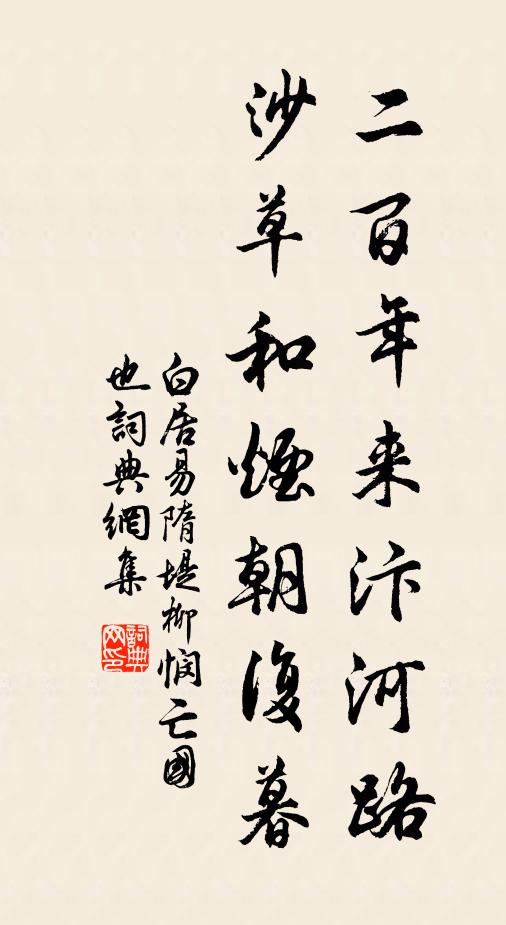 二百年来汴河路
沙草和煙朝復暮
白居易隋堤柳悯亡國
也詞典網集
詞典網印